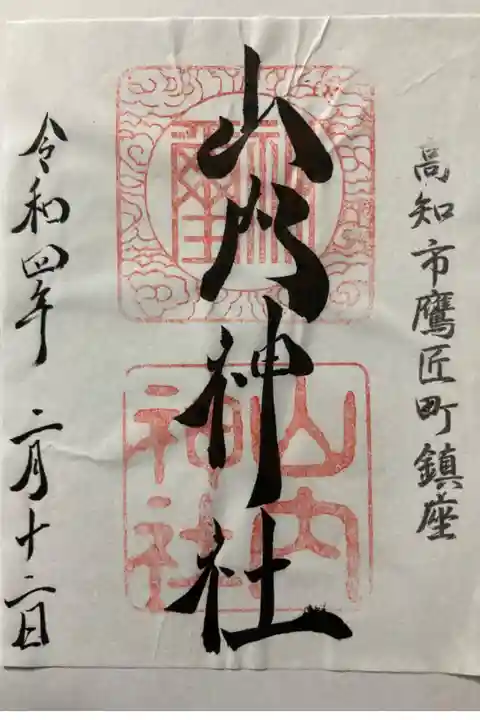 高知市鷹匠町鎮座
山内神社
神璽
山内
神社
令和四年 二月十二日